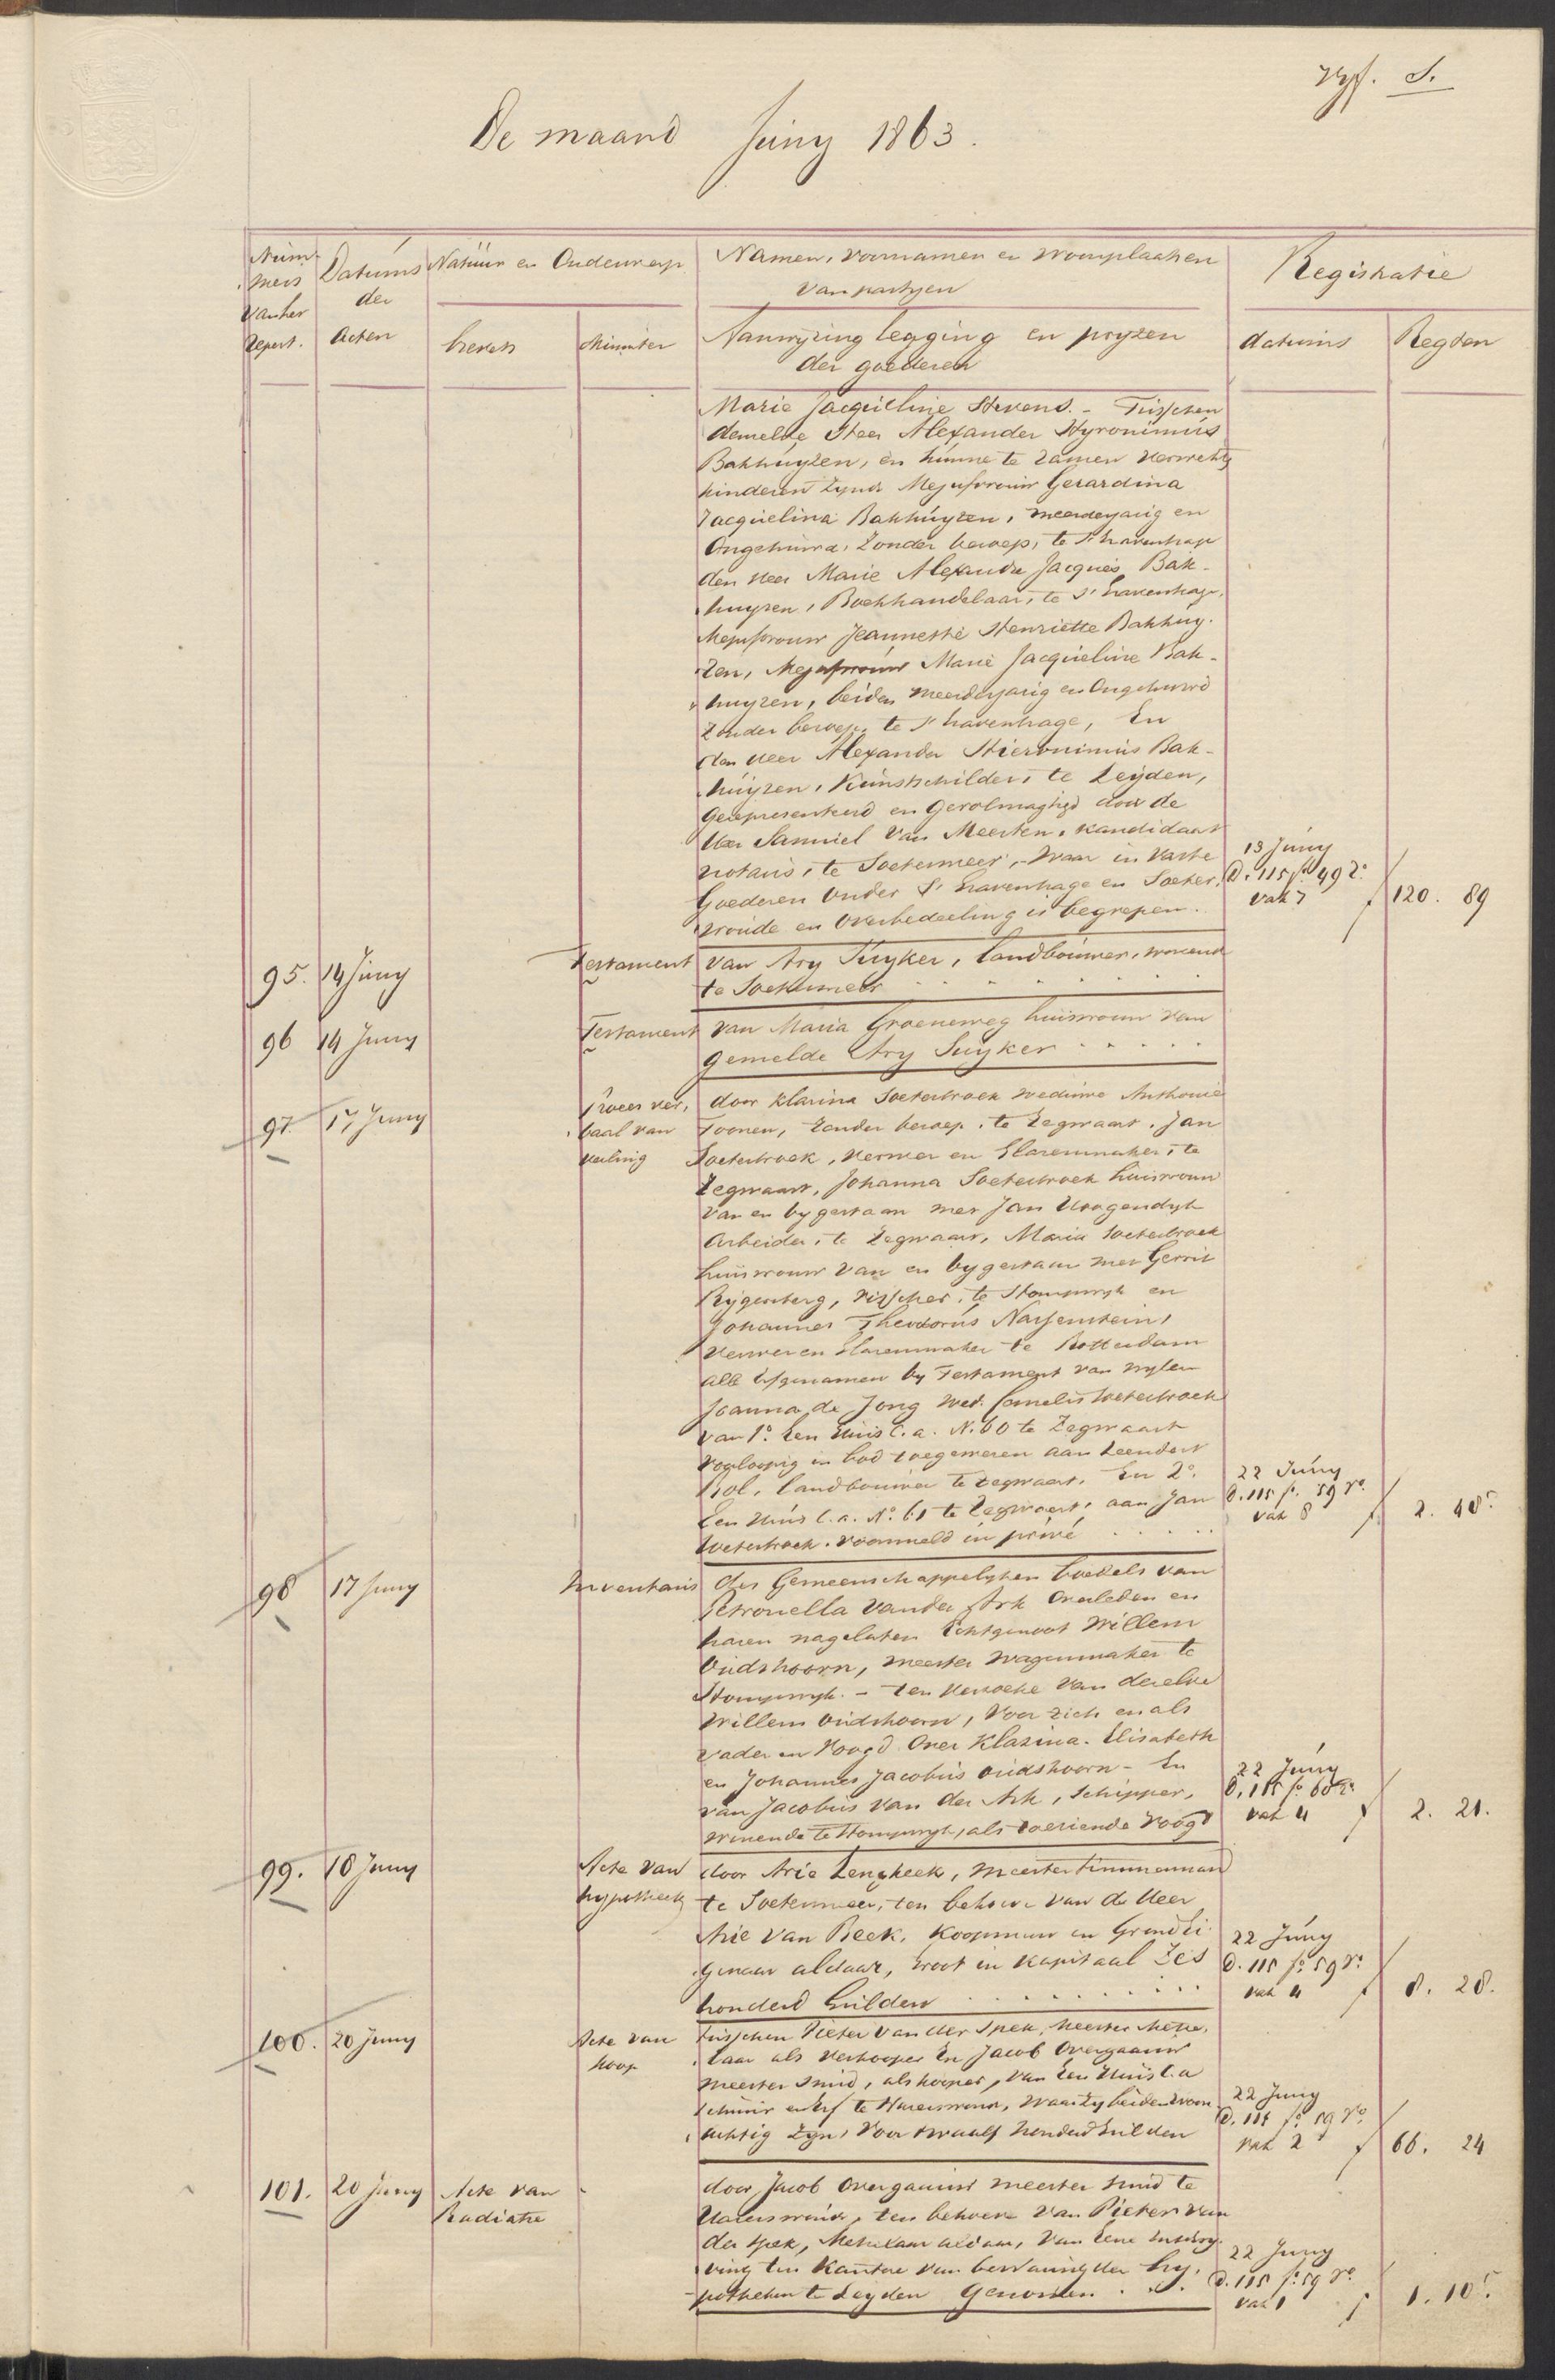 Vyf. S.
De maand Juny 1863.
Num-
mers
van het
Repert.
Datums
der
Acten
Natuur en Onderwerp
brevets
Minuten
Namen, voornamen en woonplaatsen
van partyen
Aanwyzing legging en pryzen
der goederen
Registratie
datums
Regten
Marie Jacqueline Stevens. - Tusschen
demelde Heer Alexander Hyronimus
Bakhuyzen, en hunne te zamen verwekte
kinderen zynde Mejufvrouw Gerardina
Jacquelina Bakhuyzen, meerderjarig en
Ongehuwd, zonder beroep, te 's Gravenhage
den Heer Marie Alexandre Jacques Bak-
huyzen, Boekhandelaar, te 's Gravenhage,
Mejufvrouw Jeannette Henriette Bakhuy-
zen, Mejufvrouw Marie Jacqueline Bak-
huyzen, beiden meerderjarig en Ongehuwd
zonder beroep, te 's Gravenhage, En
den Heer Alexander Hieronimus Bak-
huyzen, Kunstschilder, te Leyden,
Gerepresenteerd en Gevolmagtigd door de
Heer Samuel van Meerten, kandidaat
notaris, te Soetermeer, - waar in vaste
Goederen onder 's Gravenhage en Soeter-
woude en overbedeeling is begrepen.
13 Juny
D. 115 f° 49 V°
vak 7
f 120. 89
95. 14 Juny Testament van Ary Suyker, landbouwer, wonende
te Soetermeer
96 14 Juny Testament van Maria Groeneweg huisvrouw van
gemelde Ary Suyker
97. 17 Juny Proces ver-
baal van
veiling
door Klasina Soeterbroek weduwe Anthonie
Toonen, zonder beroep, te Zegwaart, Jan
Soeterbroek, Verwer en Glazenmaker, te
Zegwaart, Johanna Soeterbroek huisvrouw
van en bygestaan met Jan Hoogendyk
Arbeider, te Zegwaart, Maria Soeterbroek
huisvrouw van en bygestaan met Gerrit
Rygersberg, visscher, te Stompwyk en
Johannes Theodorus Nassenstein,
Verwer en Glazenmaker te Rotterdam
alle Erfgenamen by Testament van wylen
Joanna de Jong wed. Cornelis Soeterbroek
van 1°. Een Huis C. a. N. 60 te Zegwaart
voorloopig in bod toegewezen aan Leendert
Bol, landbouwer te Zegwaart. En 2°.
Een Huis C. a. N°. 61 te Zegwaart, aan Jan
Soeterbroek. voormeld in privé
22 Juny
D. 115 f°. 59 V°.
vak 8
f 2. 48⁵
98 17 Juny Inventaris des Gemeenschappelyken boedels van
Petronella van der Ark overleden en
haren nagelaten Echtgenoot Willem
Oudshoorn, meester wagenmaker te
Stompwyk. - ten verzoeke van dezelve
Willem Oudshoorn, voor zich en als
vader en Voogd over Klazina. Elisabeth
en Johannes Jacobus Oudshoorn - En
van Jacobus van der Ark, schipper,
wonende te Stompwyk, als toeziende Voogd
22 Juny
D. 115 f° 60 R°
vak 4
f 2. 21.
99. 18 Juny Acte van
hypotheek
door Arie Lengkeek, meester timmerman
te Soetermeer, ten behoeve van de Heer
Arie van Beek, koopman en Grondei-
genaar aldaar, groot in kapitaal Zes
honderd Gulden
22 Juny
D. 115 f°. 59 V°.
vak 4
f 8. 28.
100. 20 Juny Acte van
koop
tusschen Pieter van der Spek, Meester Metse-
laar als verkooper En Jacob Overgaauw
meester smid, als kooper, van Een Huis C. a
schuur en Erf te Hazerswoude, waar zy beiden woon-
achtig zyn, voor twaalf honderd Gulden
22 Juny
D. 115 f° 59 V°.
vak 2
f 66. 24
101. 20 Juny Acte van
Radiatie
door Jacob Overgaauw meester smid te
Hazerswoude, ten behoeve van Pieter van
der Spek, Metselaar aldaar, van Eene inschry-
ving ten Kantore van bewaring der hy-
potheken te Leyden Genomen
22 Juny
D. 115 f° 59 V°.
vak 1
f 1. 10⁵.